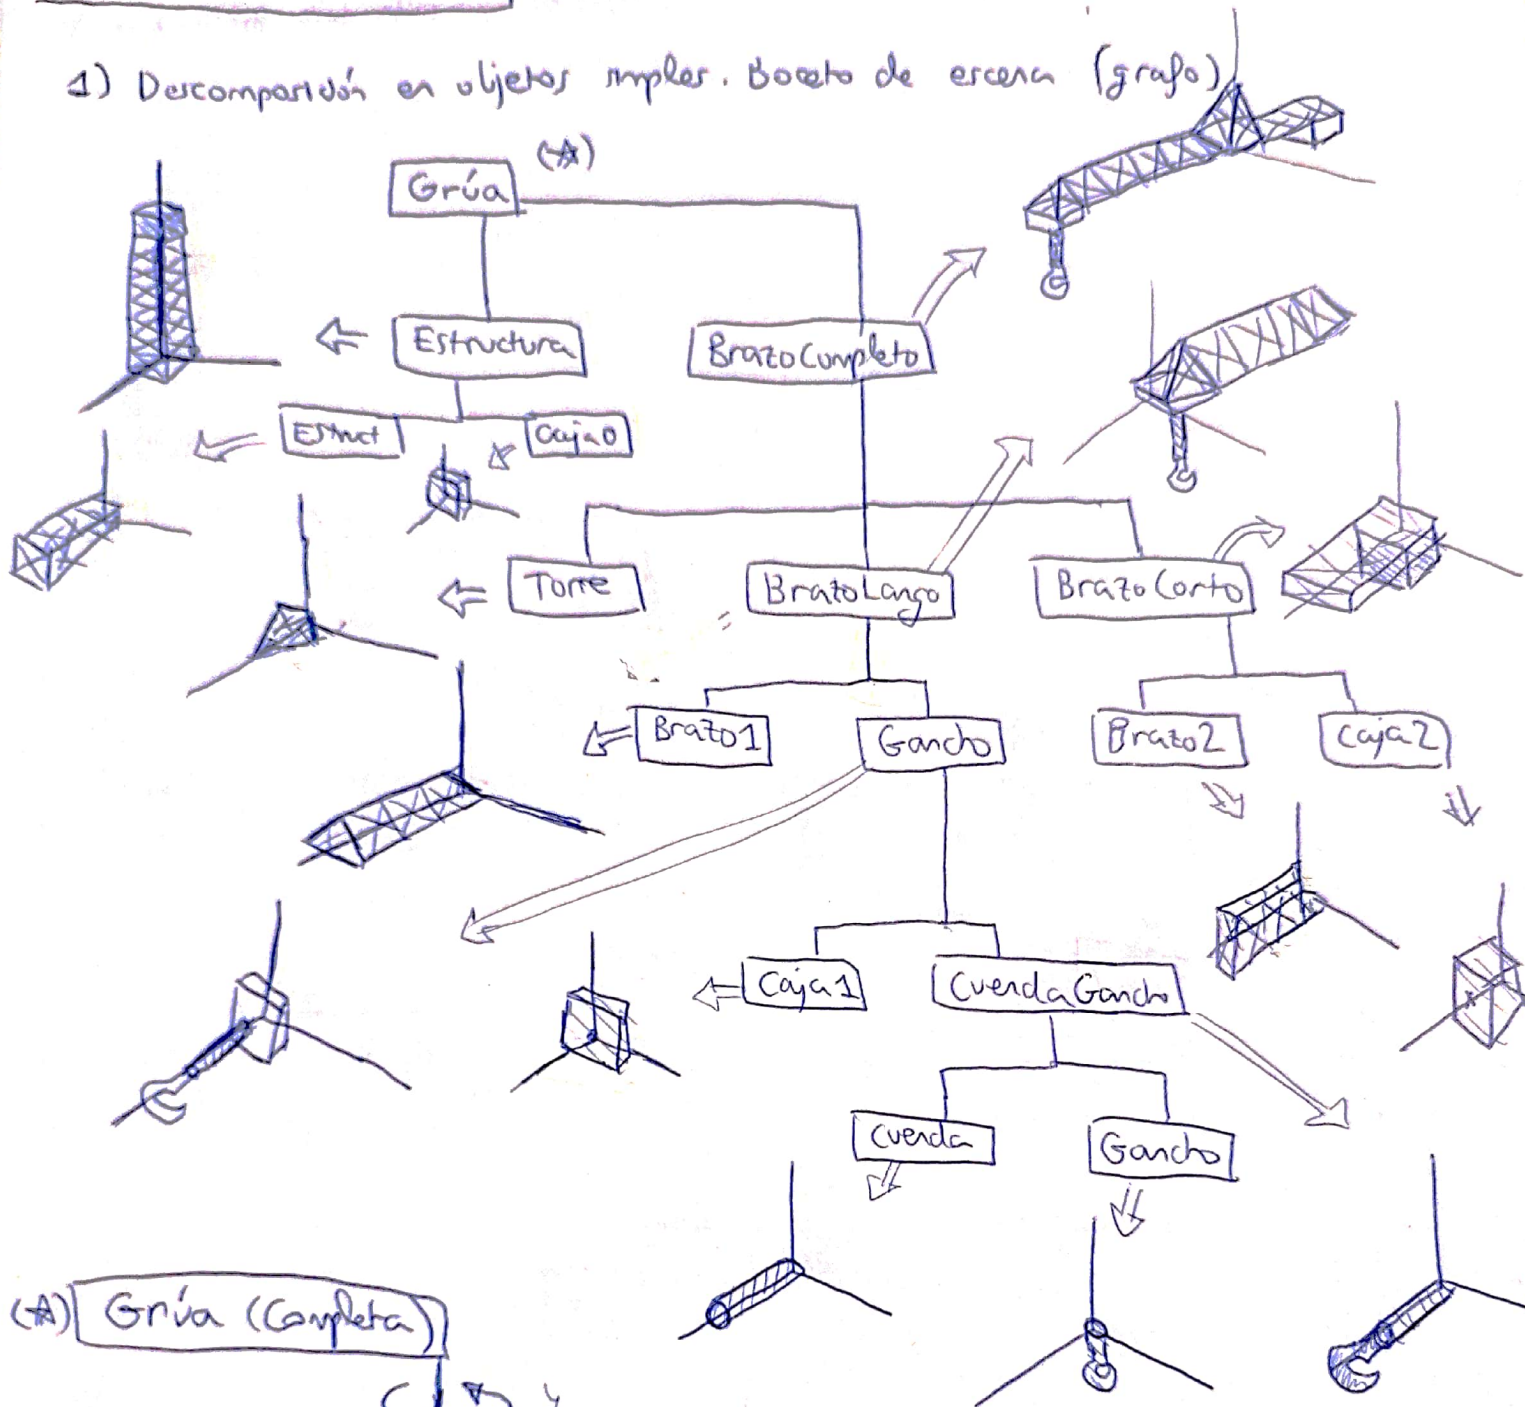 1) Descomposición en objetos simples. Boceto de escena (grafo)
(☆)
Grúa
Estructura
BrazoCompleto
Estruct
Caja0
Torre
BrazoLargo
BrazoCorto
Brazo1
Gancho
Brazo2
Caja2
Caja1
CuerdaGancho
Cuerda
Gancho
(☆) Grúa (Completa)
Y